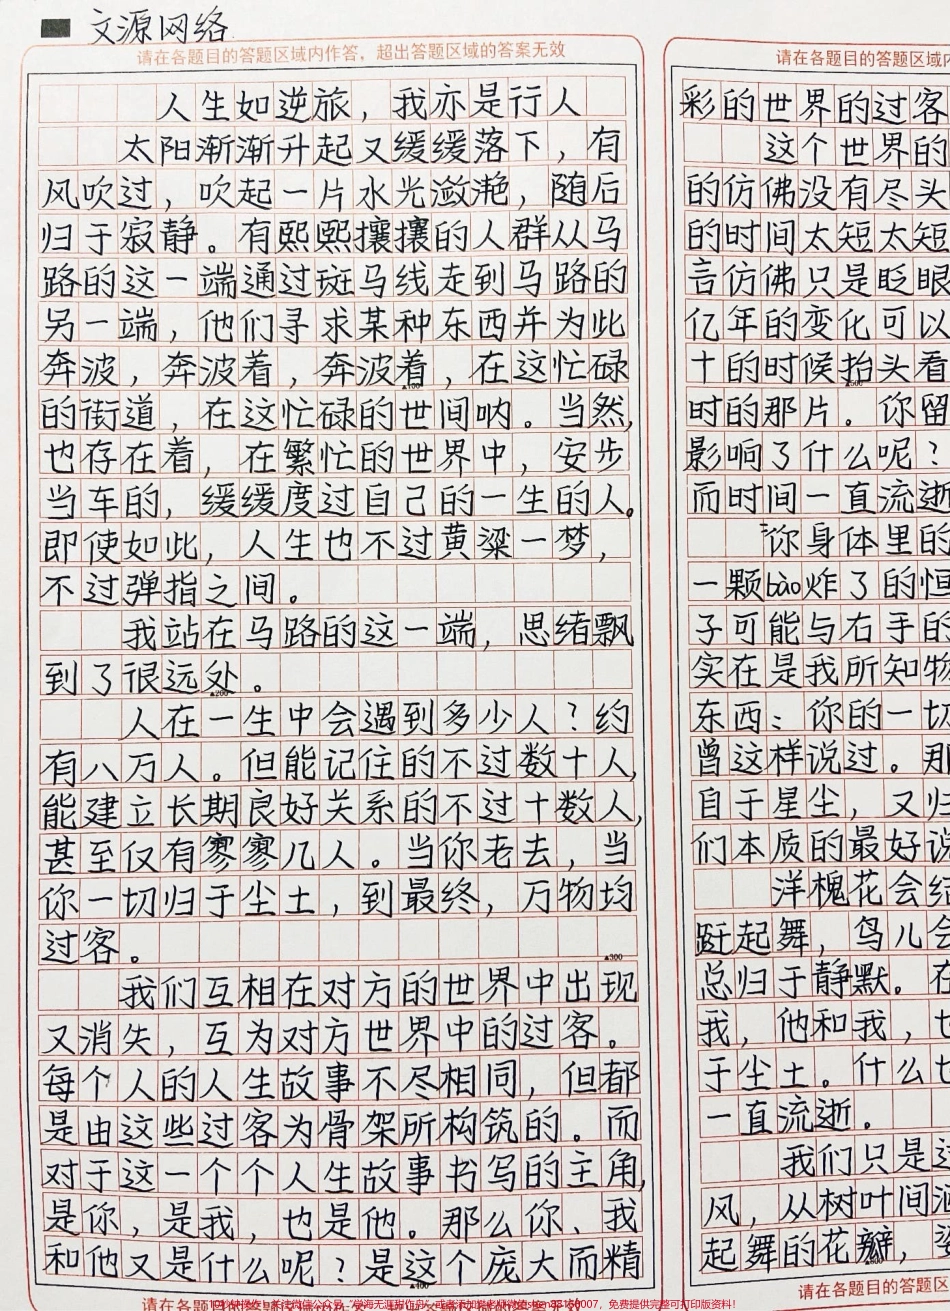 文源网络
请在各题目的答题区域内作答，超出答题区域的答案无效
人生如逆旅，我亦是行人
太阳渐渐升起又缓缓落下，有
风吹过，吹起一片水光潋滟，随后
归于寂静。有熙熙攘攘的人群从马
路的这一端通过斑马线走到马路的
另一端，他们寻求某种东西并为此
奔波，奔波着，奔波着，在这忙碌
▲100
的街道，在这忙碌的世间呐。当然，
也存在着，在繁忙的世界中，安步
当车的，缓缓度过自己的一生的人。
即使如此，人生也不过黄粱一梦，
不过弹指之间。
我站在马路的这一端，思绪飘
到了很远处。
▲200
人在一生中会遇到多少人？约
有八万人。但能记住的不过数十人，
能建立长期良好关系的不过十数人，
甚至仅有寥寥几人。当你老去，当
你一切归于尘土，到最终，万物均
过客。
▲300
我们互相在对方的世界中出现
又消失，互为对方世界中的过客。
每个人的人生故事不尽相同，但都
是由这些过客为骨架所构筑的。而
对于这一个个人生故事书写的主角，
是你，是我，也是他。那么你、我
和他又是什么呢？是这个庞大而精
▲400
请在各题目的答题区域内
彩的世界的过客
这个世界的
的仿佛没有尽头
的时间太短太短
言仿佛只是眨眼
亿年的变化可以
十的时候抬头看
▲500
时的那片。你留
影响了什么呢？
而时间一直流逝
“你身体里的
一颗bào炸了的恒
子可能与右手的
实在是我所知物
东西：你的一切
曾这样说过。那
自于星尘，又归
们本质的最好说
洋槐花会结
跹起舞，鸟儿会
总归于静默。在
我，他和我，也
于尘土。什么也
一直流逝。
我们只是这
风，从树叶间流
起舞的花瓣，
▲600
请在各题目的答题区